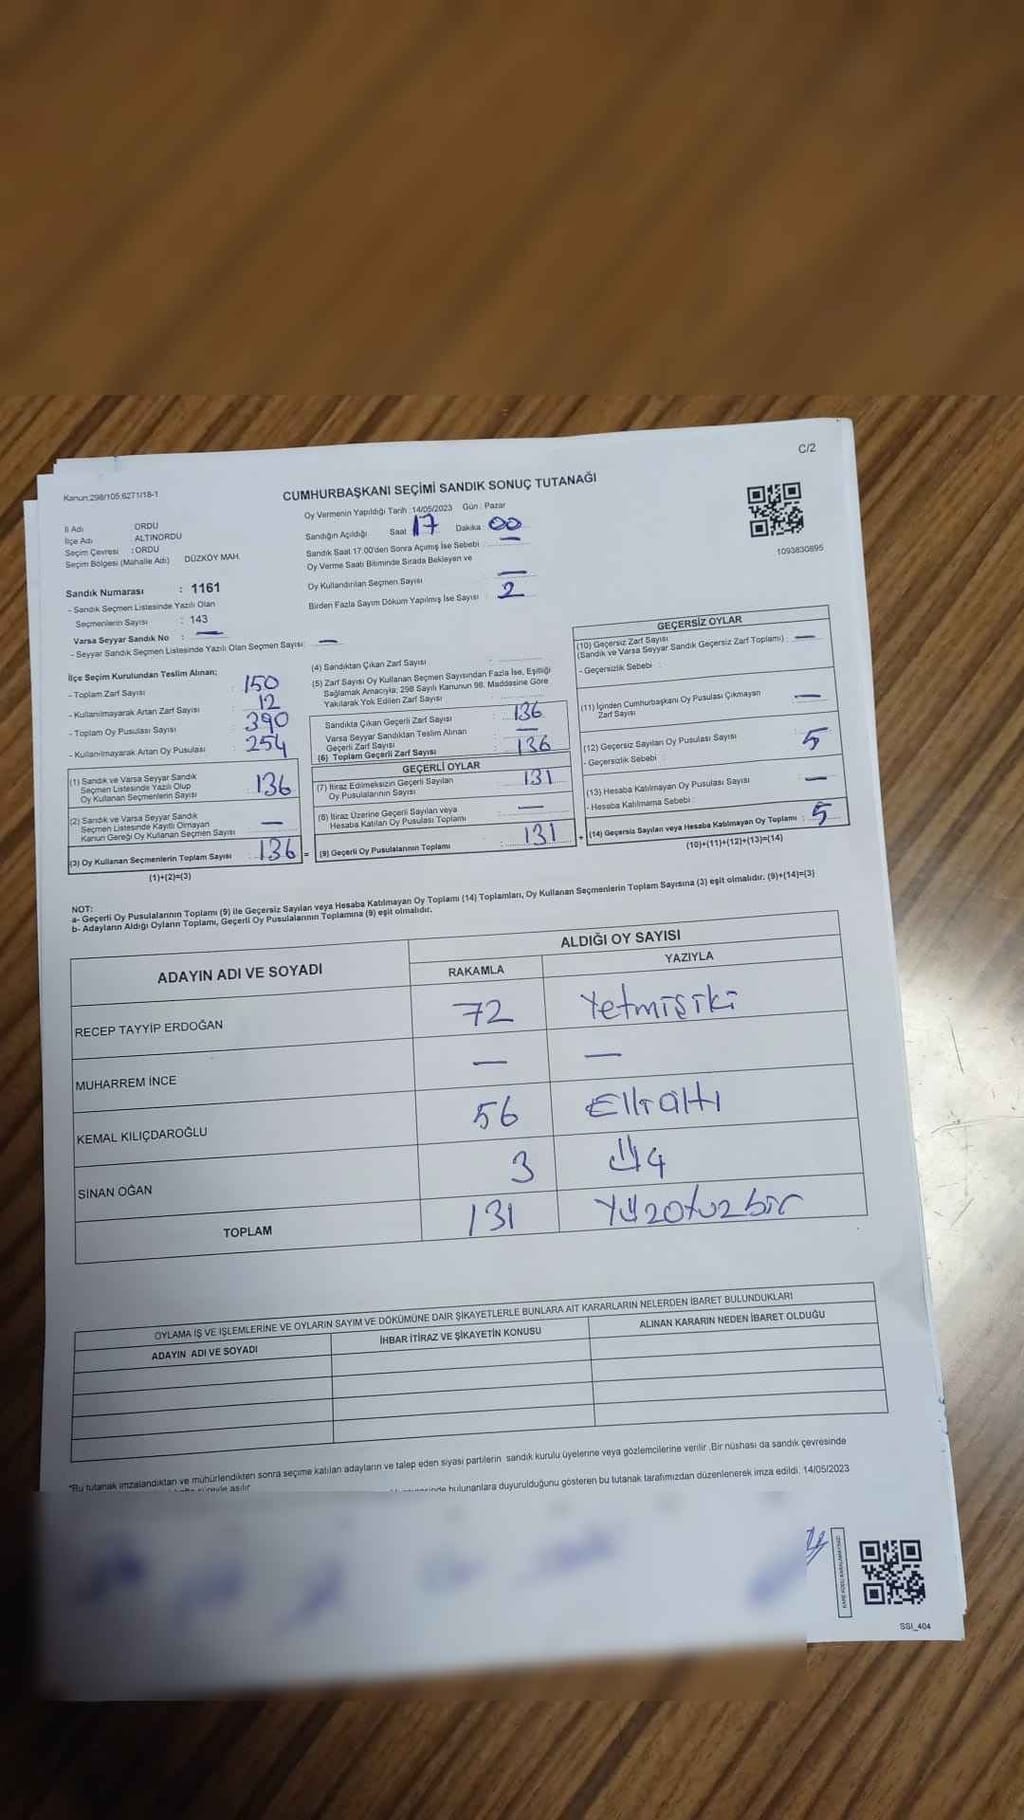 C/2
Kanun:298/105;6271/18-1
CUMHURBAŞKANI SEÇİMİ SANDIK SONUÇ TUTANAĞI
İl Adı ORDU
İlçe Adı ALTINORDU
Seçim Çevresi :ORDU
Seçim Bölgesi (Mahalle Adı) DÜZKÖY MAH.
Oy Vermenin Yapıldığı Tarih :14/05/2023 Gün : Pazar
Sandığın Açıldığı Saat 17 Dakika : 00
Sandık Saat 17.00'den Sonra Açımış İse Sebebi : —
Oy Verme Saati Bitiminde Sırada Bekleyen ve
Oy Kullandırılan Seçmen Sayısı —
Birden Fazla Sayım Döküm Yapılmış İse Sayısı : 2
1093830895
Sandık Numarası : 1161
- Sandık Seçmen Listesinde Yazılı Olan
Seçmenlerin Sayısı : 143
Varsa Seyyar Sandık No : —
- Seyyar Sandık Seçmen Listesinde Yazılı Olan Seçmen Sayısı: —
İlçe Seçim Kurulundan Teslim Alınan:
- Toplam Zarf Sayısı : 150
- Kullanılmayarak Artan Zarf Sayısı : 12
- Toplam Oy Pusulası Sayısı : 390
- Kullanılmayarak Artan Oy Pusulası : 254
(1) Sandık ve Varsa Seyyar Sandık
Seçmen Listesinde Yazılı Olup
Oy Kullanan Seçmenlerin Sayısı : 136
(2) Sandık ve Varsa Seyyar Sandık
Seçmen Listesinde Kayıtlı Olmayan
Kanun Gereği Oy Kullanan Seçmen Sayısı : —
(3) Oy Kullanan Seçmenlerin Toplam Sayısı : 136 =
(1)+(2)=(3)
(4) Sandıktan Çıkan Zarf Sayısı :
(5) Zarf Sayısı Oy Kullanan Seçmen Sayısından Fazla İse, Eşitliği
Sağlamak Amacıyla; 298 Sayılı Kanunun 98. Maddesine Göre
Yakılarak Yok Edilen Zarf Sayısı :
Sandıkta Çıkan Geçerli Zarf Sayısı : 136
Varsa Seyyar Sandıktan Teslim Alınan
Geçerli Zarf Sayısı : —
(6) Toplam Geçerli Zarf Sayısı : 136
GEÇERLİ OYLAR
(7) İtiraz Edilmeksizin Geçerli Sayılan
Oy Pusulalarının Sayısı : 131
(8) İtiraz Üzerine Geçerli Sayılan veya
Hesaba Katılan Oy Pusulası Toplamı : —
(9) Geçerli Oy Pusulalarının Toplamı : 131 +
GEÇERSİZ OYLAR
(10) Geçersiz Zarf Sayısı
(Sandık ve Varsa Seyyar Sandık Geçersiz Zarf Toplamı) : —
- Geçersizlik Sebebi :
(11) İçinden Cumhurbaşkanı Oy Pusulası Çıkmayan
Zarf Sayısı : —
(12) Geçersiz Sayılan Oy Pusulası Sayısı : 5
- Geçersizlik Sebebi :
(13) Hesaba Katılmayan Oy Pusulası Sayısı : —
- Hesaba Katılmama Sebebi :
(14) Geçersiz Sayılan veya Hesaba Katılmayan Oy Toplamı : 5
(10)+(11)+(12)+(13)=(14)
NOT:
a- Geçerli Oy Pusulalarının Toplamı (9) ile Geçersiz Sayılan veya Hesaba Katılmayan Oy Toplamı (14) Toplamları, Oy Kullanan Seçmenlerin Toplam Sayısına (3) eşit olmalıdır. (9)+(14)=(3)
b- Adayların Aldığı Oyların Toplamı, Geçerli Oy Pusulalarının Toplamına (9) eşit olmalıdır.
ADAYIN ADI VE SOYADI
ALDIĞI OY SAYISI
RAKAMLA YAZIYLA
RECEP TAYYİP ERDOĞAN 72 Yetmişiki
MUHARREM İNCE — —
KEMAL KILIÇDAROĞLU 56 Elli altı
SİNAN OĞAN 3 Üç
TOPLAM 131 Yüzotuzbir
OYLAMA İŞ VE İŞLEMLERİNE VE OYLARIN SAYIM VE DÖKÜMÜNE DAİR ŞİKAYETLERLE BUNLARA AİT KARARLARIN NELERDEN İBARET BULUNDUKLARI
ADAYIN ADI VE SOYADI İHBAR İTİRAZ VE ŞİKAYETİN KONUSU ALINAN KARARIN NEDEN İBARET OLDUĞU
*Bu tutanak imzalandıktan ve mühürlendikten sonra seçime katılan adayların ve talep eden siyasi partilerin sandık kurulu üyelerine veya gözlemcilerine verilir .Bir nüshası da sandık çevresinde
süreyle asılır. bulunanlara duyurulduğunu gösteren bu tutanak tarafımızdan düzenlenerek imza edildi. 14/05/2023
SSI_404